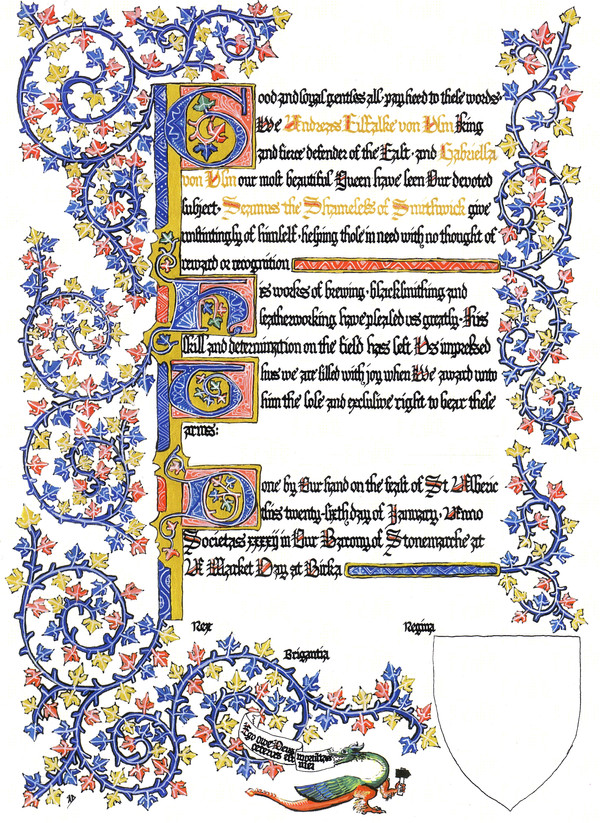 Good and loyal gentles all · pay heed to these words ·
We Andreas Eisfalke von Ulm King
and fierce defender of the East · and Gabriella
von Ulm our most beautiful Queen have seen Our devoted
subject · Seamus the Shameless of Smithwick give
unstintingly of himself · helping those in need with no thought of
reward or recognition
His works of brewing · blacksmithing and
leatherworking have pleased us greatly · His
skill and determination on the field has left Us impressed
Thus we are filled with joy when We award unto
him the sole and exclusive right to bear these
arms:
Done by Our hand on the feast of St Alberic
this twenty-sixth day of January · Anno
Societas xxxxij in Our Barony of Stonemarche at
A Market Day at Birka
Rex
Regina
Brigantia